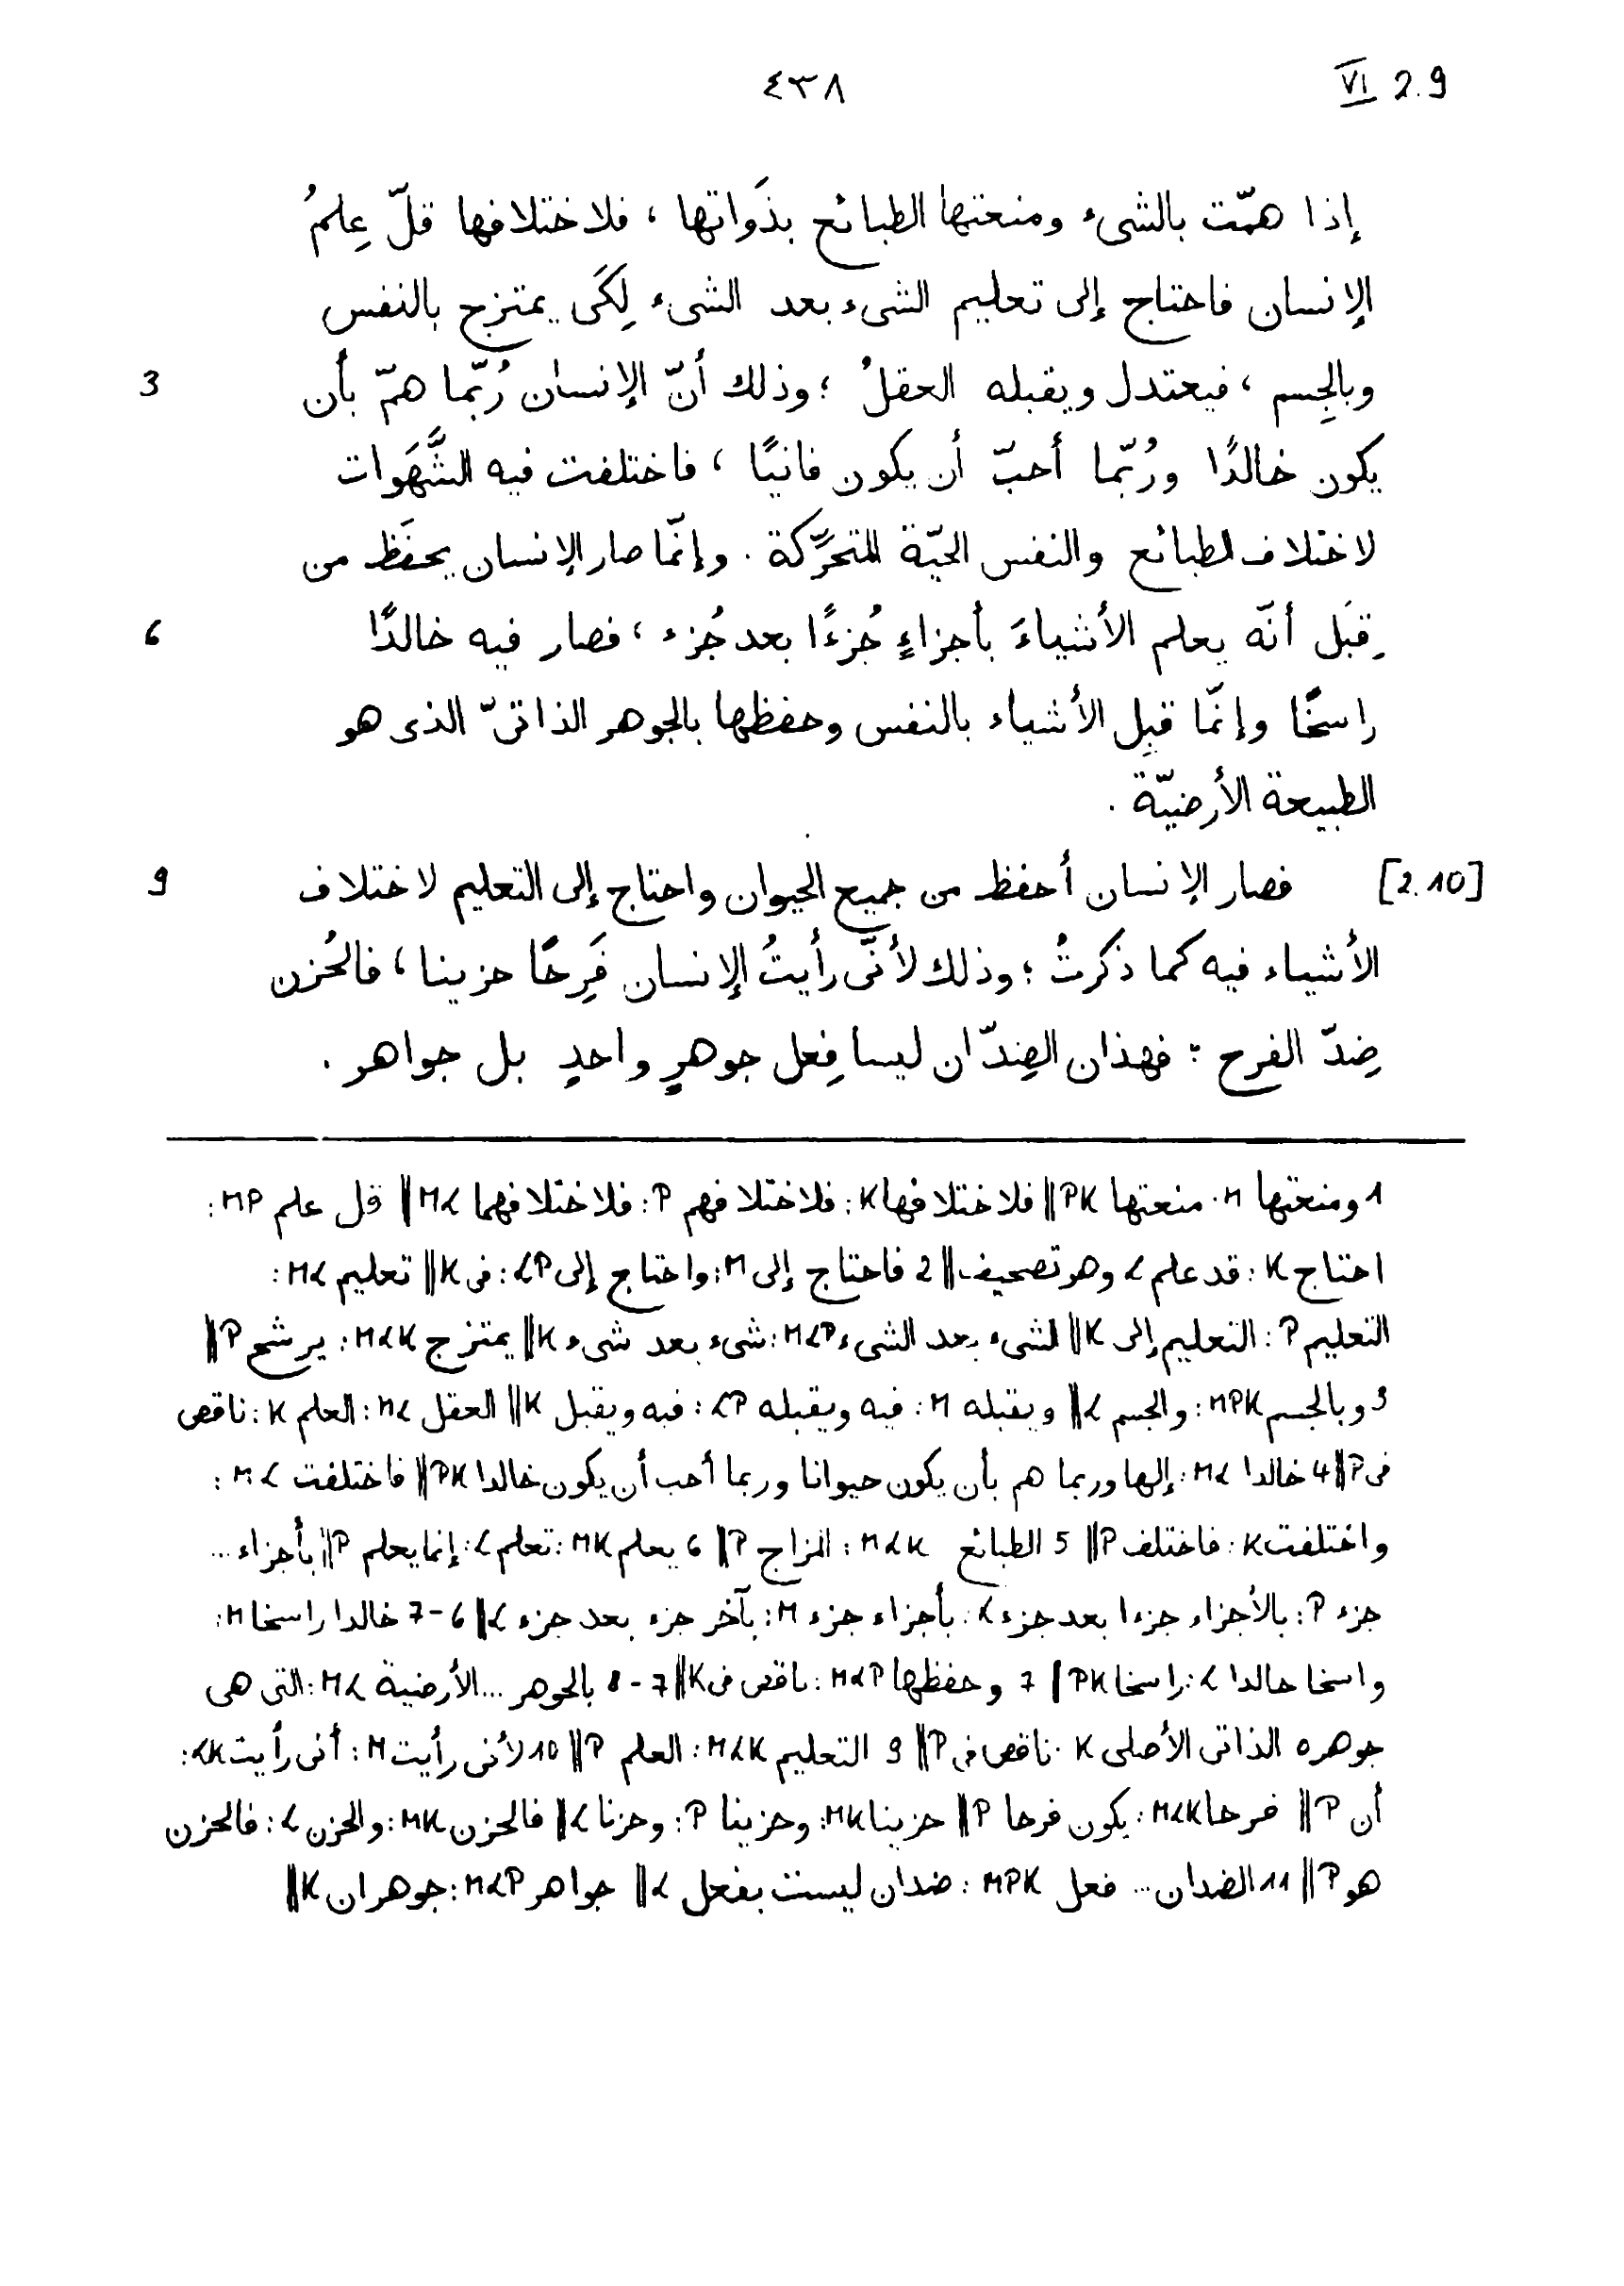 ٤٣٨ VI 2.9
إذا همّت بالشىء ومنعتها الطبائع بذَواتها ، فلاختلافها قلّ عِلمُ
الإنسان فاحتاج إلى تعليم الشىء بعد الشىء لِكَى يمتزج بالنفس
3 وبالجِسم ، فيعتدل ويقبله العقلُ ؛ وذلك أنّ الإنسان رُبّما همّ بأن
يكون خالدًا ورُبّما أحبّ أن يكون فانيًا ، فاختلفت فيه الشَّهَوات
لاختلاف الطبائع والنفس الحيّة المتحرّكة . وإنّما صار الإنسان يحفَظ من
6 قِبَل أنّه يعلم الأشياءَ بأجزاءٍ جُزءًا بعد جُزء ، فصار فيه خالدًا
راسخًا وإنّما قبِل الأشياء بالنفس وحفظها بالجوهر الذاتىّ الذى هو
الطبيعة الأرضيّة .
9 [2.10] فصار الإنسان أحفظ من جميع الحيوان واحتاج إلى التعليم لاختلاف
الأشياء فيه كما ذكرتُ ؛ وذلك لأنّى رأيتُ الإنسان فَرِحًا حزينا ، فالحُزن
ضِدّ الفرح : فهذان الضِدّان ليسا فِعل جوهرٍ واحدٍ بل جواهر .
1 ومنعتها M : منعتها PK || فلاختلافها K : فلاختلافهم P : فلاختلافهما ML || قل علم MP :
احتاج K : قد علم L وهو تصحيف || 2 فاحتاج إلى M : واحتاج إلى LP : فى K || تعليم ML :
التعليم P : التعليم إلى K || الشىء بعد الشىء MLP : شىء بعد شىء K || يمتزج MLK : يرشح P ||
3 وبالجسم MPK : والجسم L || ويقبله M : فيه ويقبله LP : فيه ويقبل K || العقل ML : العلم K : ناقص
فى P || 4 خالدا ML : إلها وربما هم بأن يكون حيوانا وربما أحب أن يكون خالدا PK || فاختلفت ML :
واختلفت K : فاختلف P || 5 الطبائع MLK : المزاج P || 6 يعلم MK : تعلم L : إنما يعلم P || بأجزاء ...
جزء P : بالأجزاء جزءا بعد جزء L : بأجزاء جزء M : بآخر جزء بعد جزء L || 6-7 خالدا راسخا M :
واسخا حالدا L : راسخا PK || 7 وحفظها MLP : ناقص فى K || 7-8 بالجوهر ... الأرضية ML : التى هى
جوهره الذاتى الأصلى K : ناقص فى P || 9 التعليم MLK : العلم P || 10 لأنى رأيت M : أنى رأيت LK :
أن P || فرحا MLK : يكون فرحا P || حزينا MK : وحزينا P : وحزنا L || فالحزن MK : والحزن L : فالحزن
هو P || 11 الضدان ... فعل MPK : ضدان ليست بفعل L || جواهر MLP : جوهران K ||